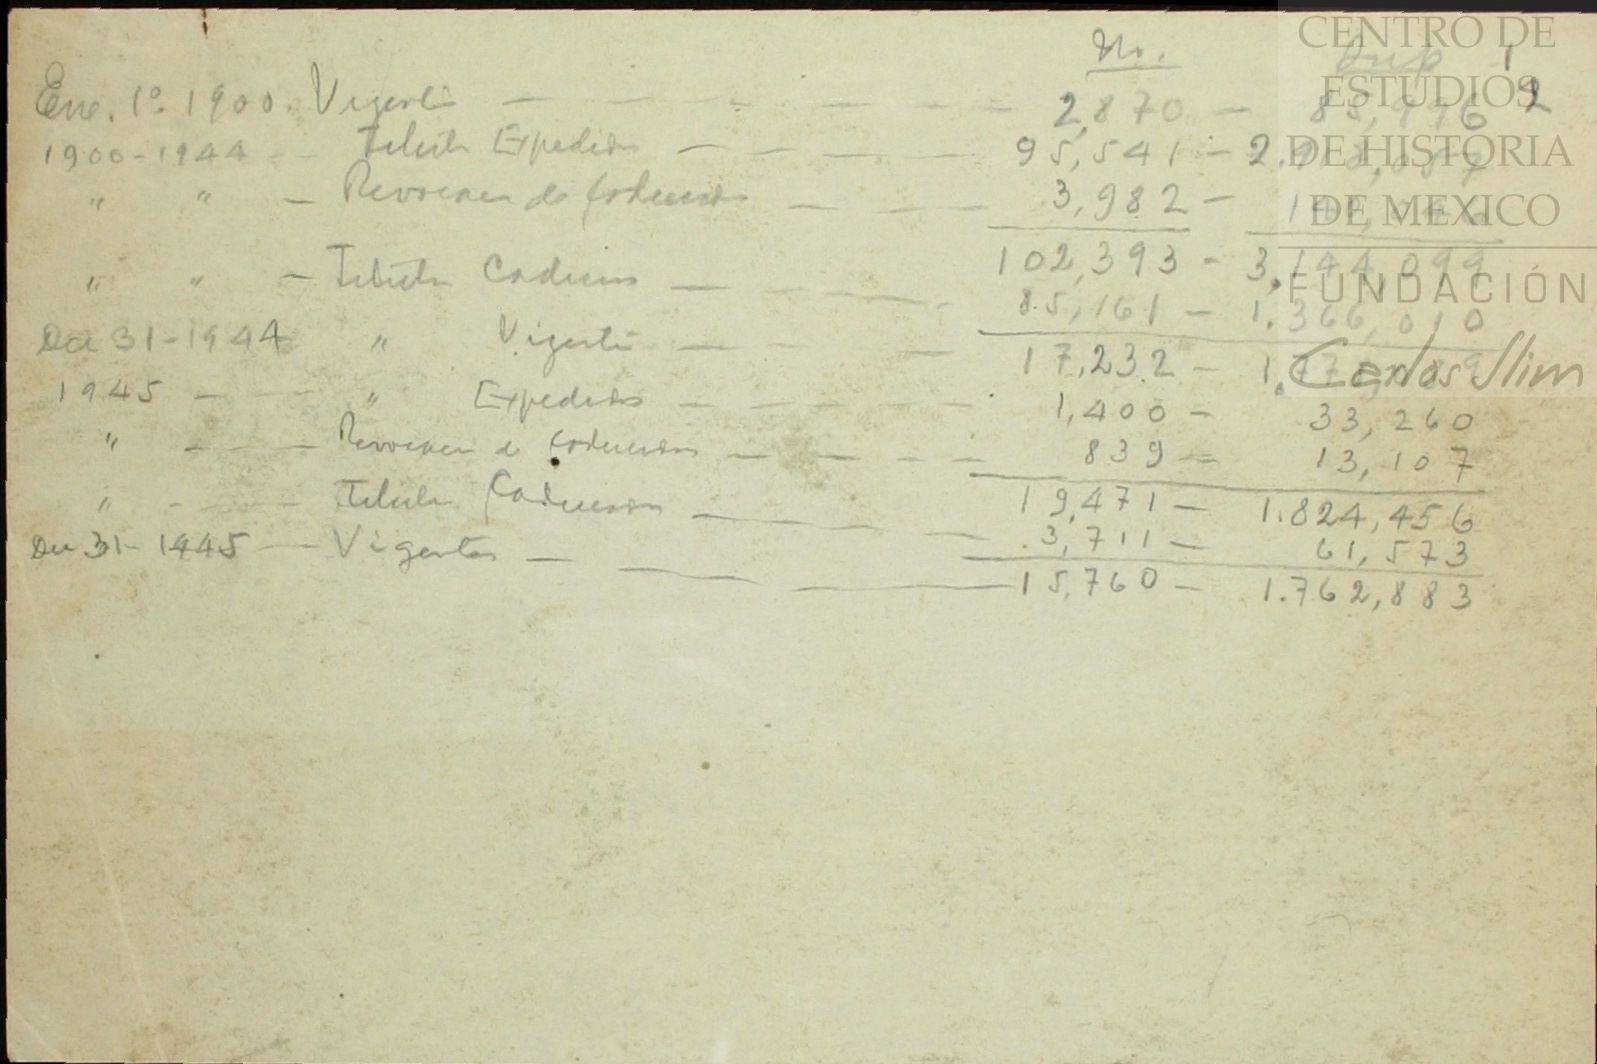 No. Sup 1
Ene. 1º 1900. Vigentes — 2,870 — 85,996 2
1900-1944 — Titulos Expedidos — 95,541 — 2.918,057
" " — Revocacion de Caducidad — 3,982 — 140,046
102,393 — 3,144,099
" " — Titulos Caducos — 85,161 — 1.366,010
Dic 31-1944 " Vigentes — 17,232 — 1.778,089
1945 — " Expedidos — 1,400 — 33,260
" — Revocacion de Caducidad — 839 — 13,107
19,471 — 1.824,456
" — Titulos Caducados — 3,711 — 61,573
Dic 31-1945 — Vigentes — 15,760 — 1.762,883
CENTRO DE
ESTUDIOS
DE HISTORIA
DE MEXICO
FUNDACIÓN
Carlos Slim